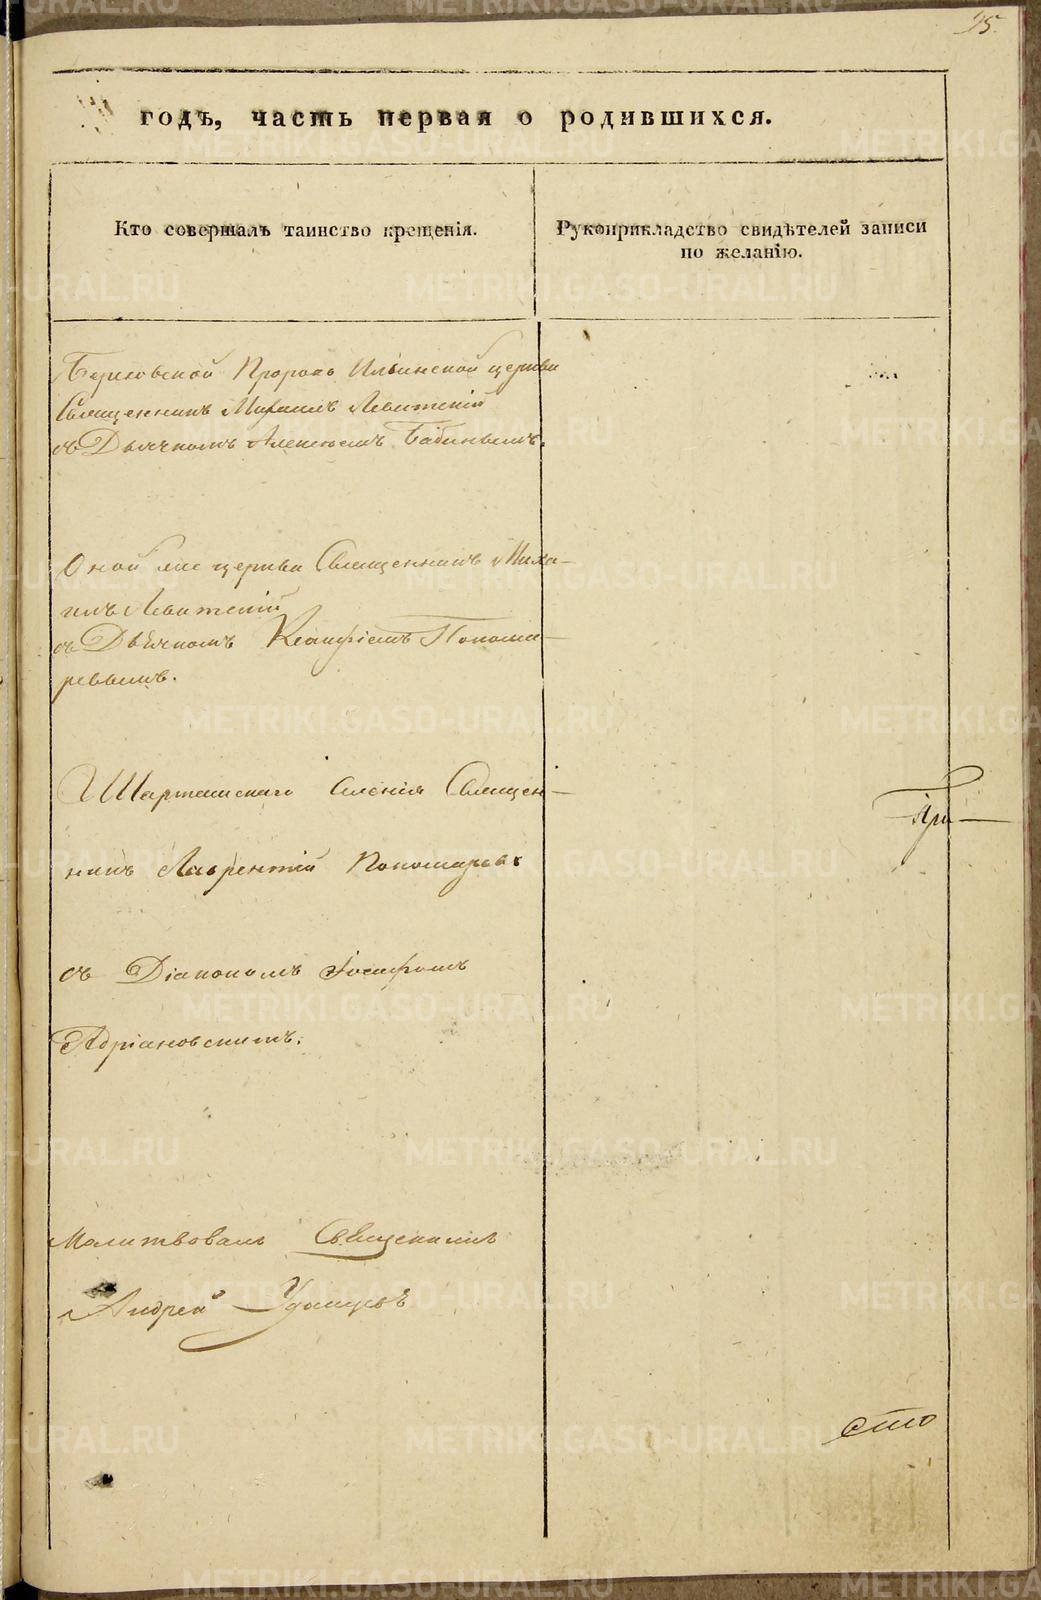 95.
годъ, часть первая о родившихся.
Кто совершалъ таинство крещенія.
Рукоприкладство свидѣтелей записи
по желанію.
Пророко Ильинской церкви
Священникъ Михаилъ Левитскій
съ Дьячкомъ Алексѣемъ Бабинымъ.
Оной же церкви Священникъ Миха-
илъ Левитскій
съ Дьячкомъ Понома-
ревымъ.
Шарташскаго селенія Священ-
никъ Лаврентій Пономаревъ
съ Діакономъ Іоасафомъ
Адріановскимъ.
При-
Молитвовалъ Священникъ
Андрей Удинцовъ
сто
METRIKI.GASO-URAL.RU